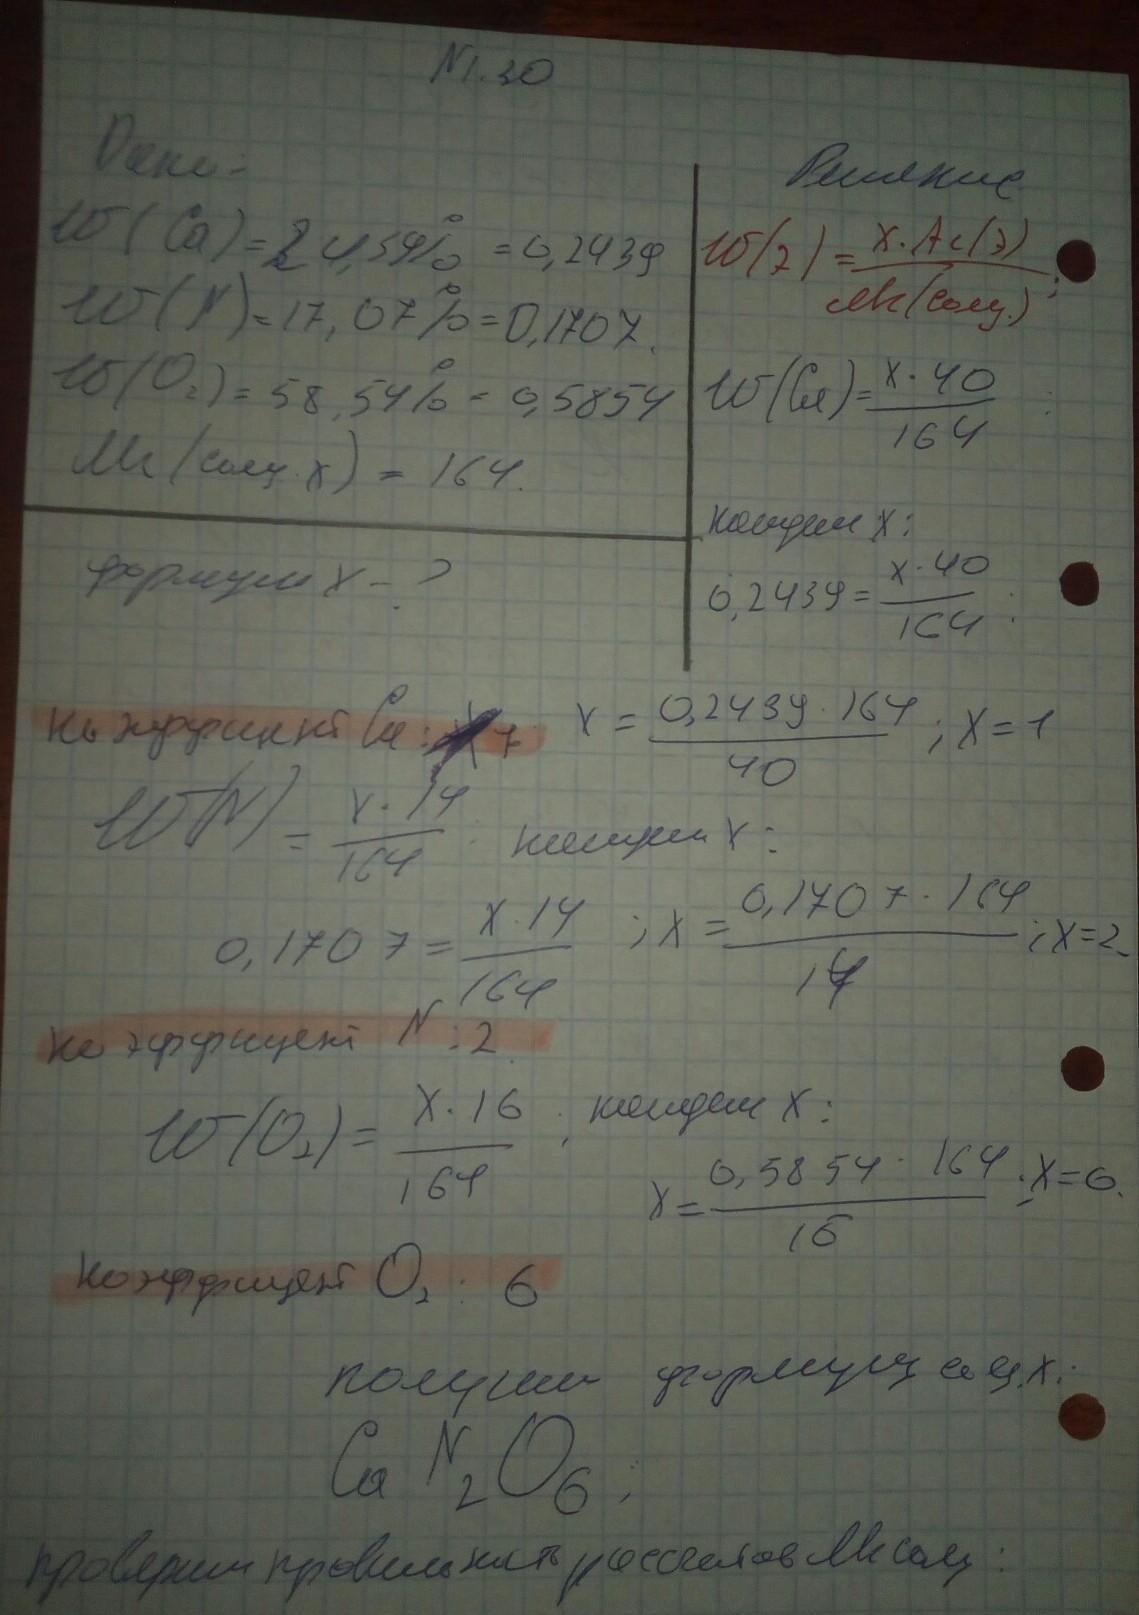 N1.30
Дано:
Решение
W(Ca)=24,59% = 0,2439
W(N)=17,07%=0,1707.
W(O₂)=58,54% = 0,5854
Mr(соед. x) = 164.
формула x - ?
W(Э)=x·Ar(Э)/Mr(соед.);
W(Ca)=x·40/164;
найдем x:
0,2439=x·40/164;
коэффициент Ca: 1 x=0,2439·164/40; x=1
W(N)=x·14/164. найдем x:
0,1707=x·14/164; x=0,1707·164/14; x=2.
коэффициент N:2.
W(O₂)=x·16/164; найдем x:
x=0,5854·164/16; x=6.
коэффициент O₂: 6
получим формулу соед. x:
CaN₂O₆;
проверим правильность рассчетов Mr соед: